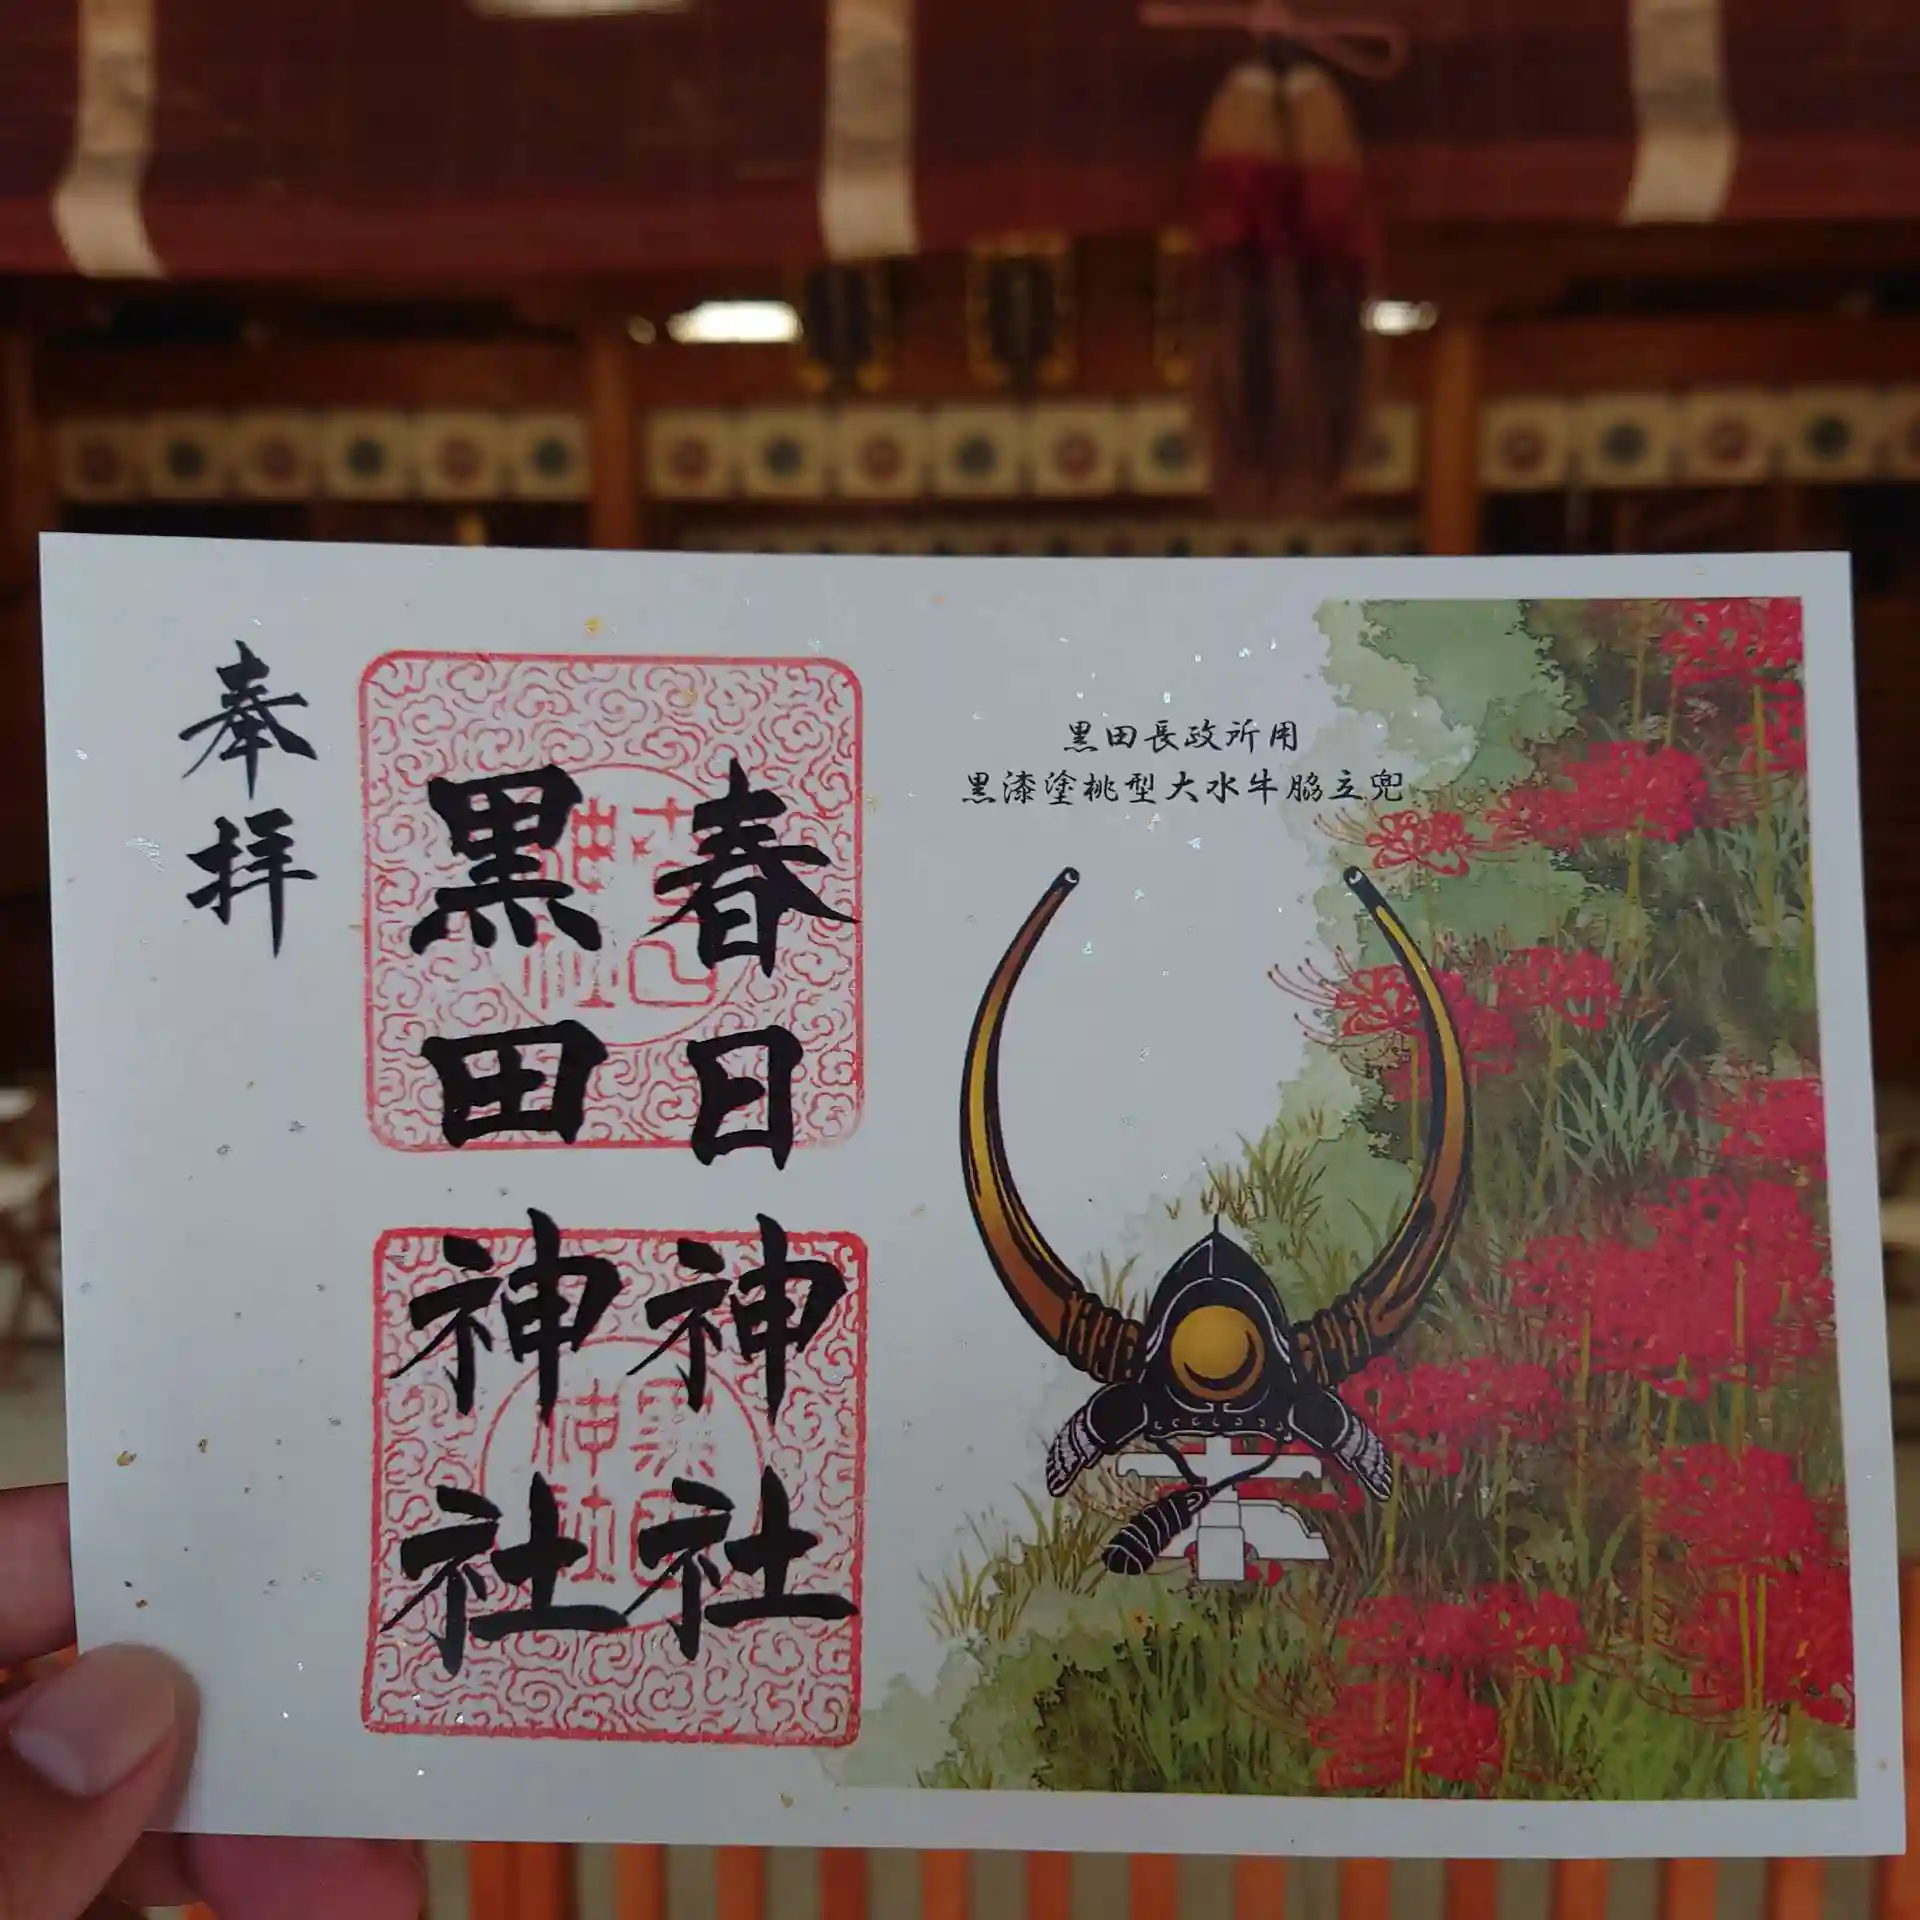 黒田長政所用
黒漆塗桃型大水牛脇立兜
春日神社
黒田神社
奉拝